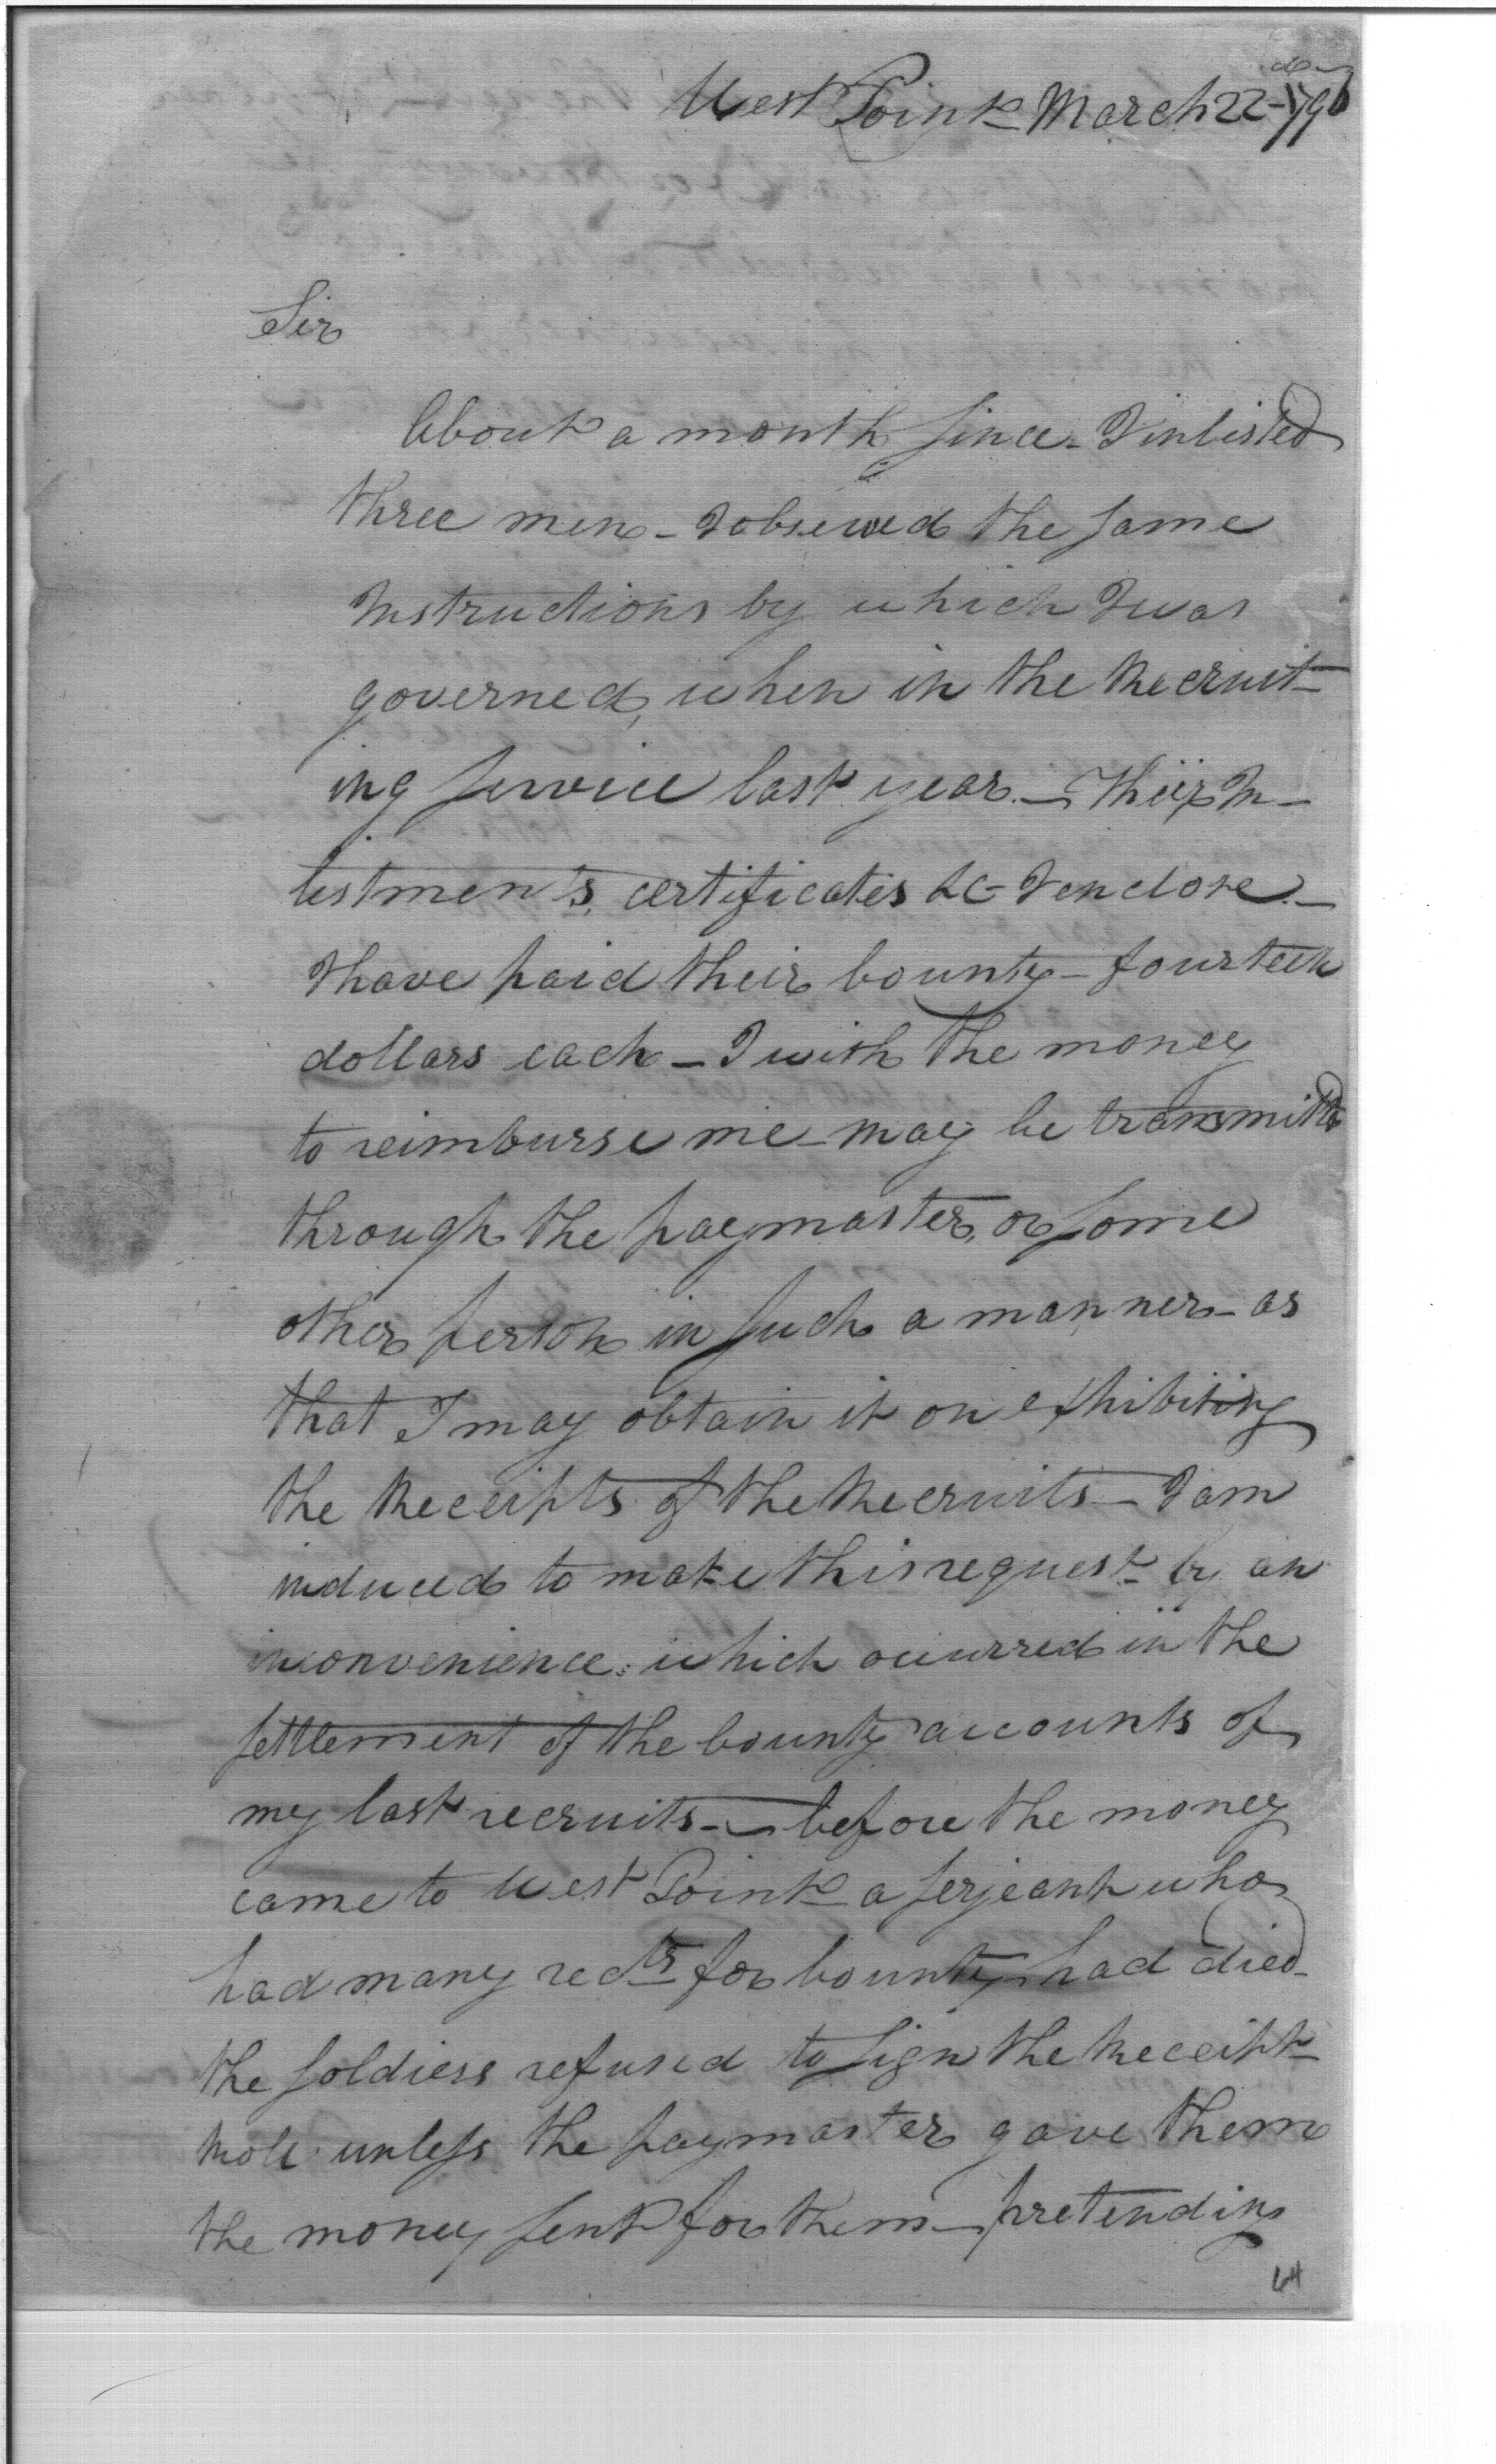 West Point March 22d 1796
Sir
About a month since - I inlisted
three men - I observed the same
Instructions by which I was
governed, when in the Recruit-
ing service last year. - Their In-
listments, certificates &c I enclose. -
I have paid their bounty - fourteen
dollars each - I wish the money
to reimburse me - may be transmitted
through the paymaster, or some
other person in such a manner - as
that I may obtain it on exhibiting
the Receipts of the Recruits - I am
induced to make this request - by an
inconvenience which occurred in the
settlement of the bounty accounts of
my last recruits - before the money
came to West Point - a serjeant who
had many rects for bounty had died -
the soldiers refused to sign the Receipt-
Roll unless the paymaster gave them
the money sent for them - pretending
64